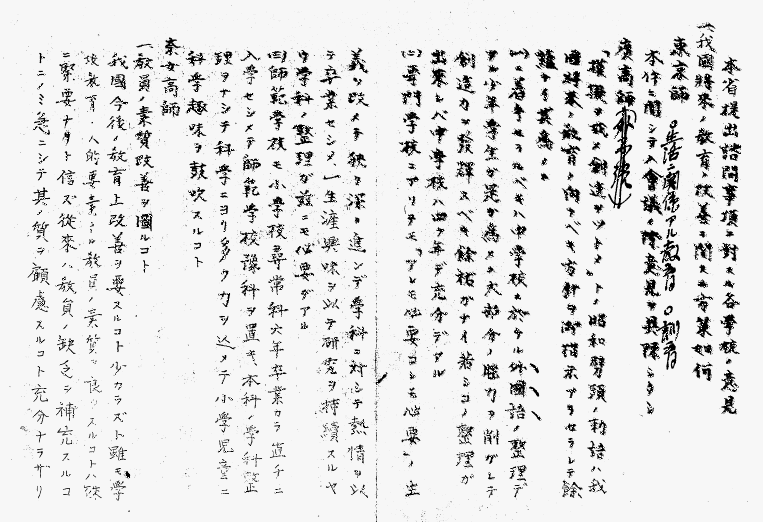 本省提出諮問事項ニ対スル各学校ノ意見
(一)我國將來ノ教育ノ改善ニ関スル方策如何
東京師
○生活ニ関係アル教育 ○訓育
本件ニ関シテハ會議ノ際意見ヲ具陳シタシ
廣高師
「模擬ヲ改メ創造ヲツトメヨトノ昭和劈頭ノ勅語ハ我
國將來ノ教育ノ向フベキ方針ヲ御指示アラセラレテ餘
蘊ナイ
(一)ニ着手セラルベキハ中学校ニ於ケル外國語ノ整理デ
アル少年学生ガ是ガ為メニ大部分ノ脳力ヲ削ゲレテ
創造力ヲ発揮スベキ餘裕ガナイ若シコノ整理ガ
出来レバ中学校ハ四ヶ年デ充分デアル
(二)専門学校ニアリテモ「アレモ必要コレモ必要」ノ主
義ヲ改メテ狭ク深ク進ンデ学科ニ対シテ熱情ヲ以
テ卒業セシメ、一生涯興味ヲ以テ研究ヲ持續スルヤ
ウ学科ノ整理ガ茲ニモ必要デアル
(三)師範学校モ小学校尋常科六年卒業カラ直チニ
入学セシメテ師範学校豫科ヲ置キ本科ノ学科整
理ヲナシテ科学ニヨリ多ク力ヲ込メテ小学児童ニ
科学趣味ヲ鼓吹スルコト
奈女高師
一教員ノ素質改善ヲ圖ルコト
我國今後ノ教育上改善ヲ要スルコト少カラズト雖モ学
校教育ノ人的要素タル教員ノ素質ヲ良クスルコトハ殊
ニ緊要ナリト信ズ従来ハ教員ノ缺乏ヲ補充スルコ
トニノミ急ニシテ其ノ質ヲ顧慮スルコト充分ナラザリ